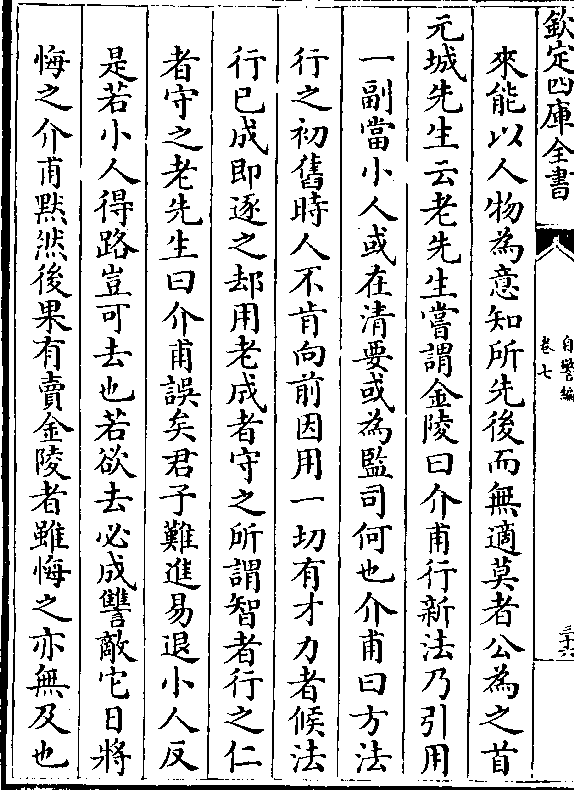 欽定四庫全書
自警編
卷七
三十六
來能以人物為意知所先後而無適莫者公為之首
元城先生云老先生嘗謂金陵曰介甫行新法乃引用
一副當小人或在清要或為監司何也介甫曰方法
行之初舊時人不肯向前因用一切有才力者候法
行已成即逐之却用老成者守之所謂智者行之仁
者守之老先生曰介甫誤矣君子難進易退小人反
是若小人得路豈可去也若欲去必成讐敵它日將
悔之介甫黙然後果有賣金陵者雖悔之亦無及也